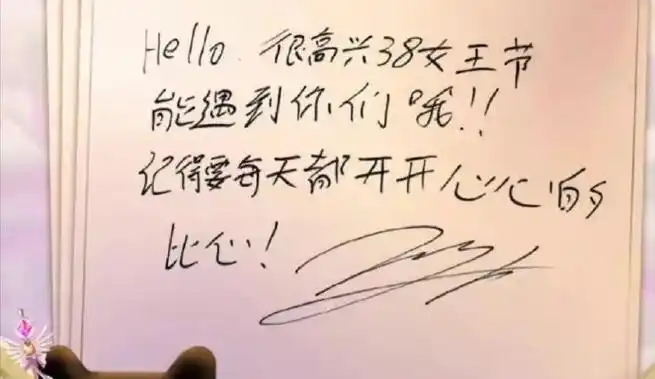 Hello. 很高兴38女王节
能遇到你们哦!!
记得要每天都开开心心的
比心!